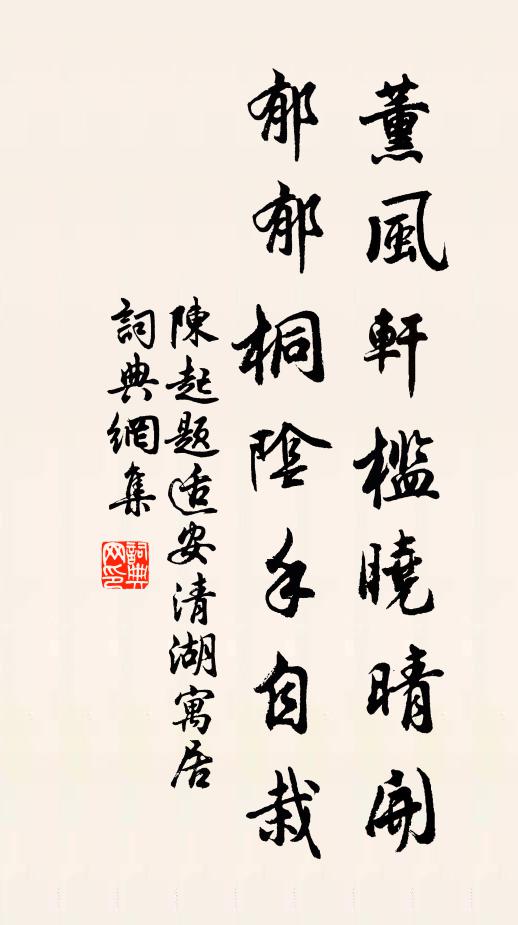 薰風軒檻曉晴開
郁郁桐陰手自栽
陳起题适安清湖寓居
詞典網集
詞典网印